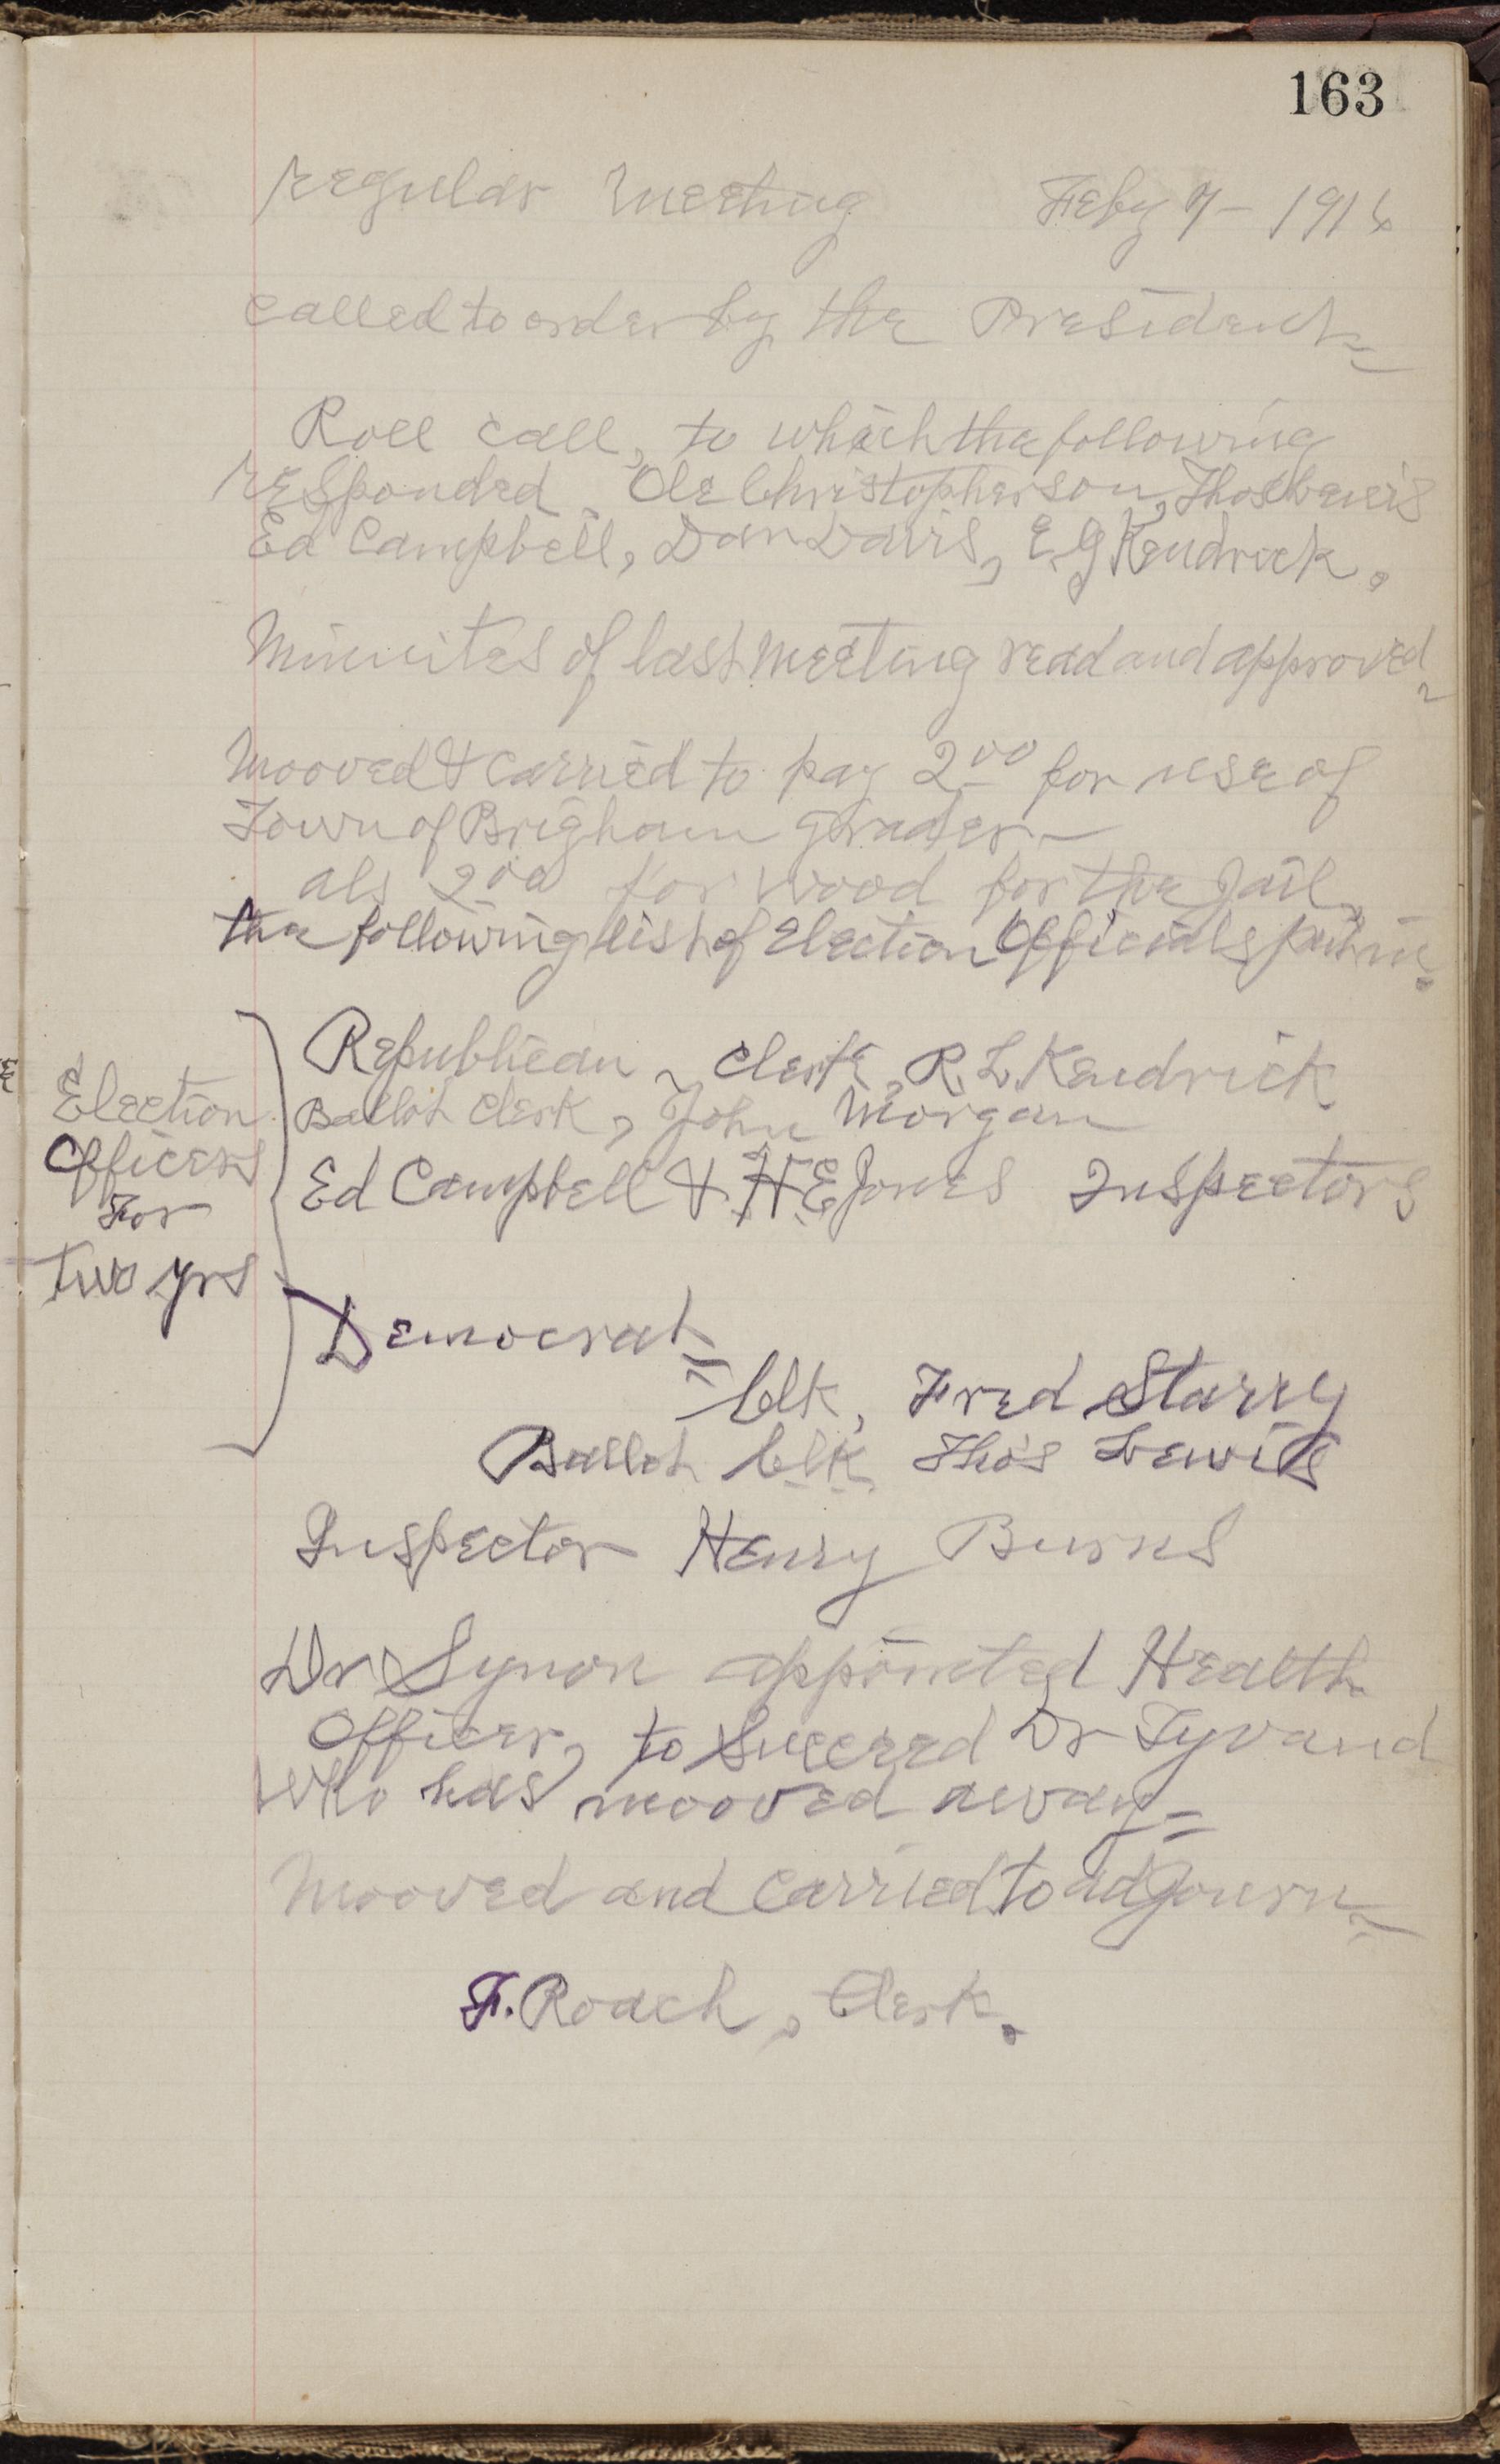 163
regular meeting Feby 7 - 1916
called to order by the President
Roll call, to which the following
responded Ole Christopherson, Thos Lewis
Ed Campbell, Dan Davis, E G Kendrick.
Minuites of last meeting read and approved
Mooved & carried to pay 2 00 for use of
Town of Brigham grader -
als 2 00 for wood for the Jail,
the following list of Election Officials put in.
Republican, Clerk, R. L. Kendrick
Ballot Clerk, John Morgan
Ed Campbell & H. E. Jones Inspectors
Election
Officers
For
two yrs
Democrat =
Clk, Fred Starry
Ballot Clk, Thos Lewis
Inspector Henry Burns
Dr Synon appointed Health
Officer, to Succeed Dr Tyvand
who has mooved away =
Mooved and Carried to adJourn -
F. Roach, Clerk.